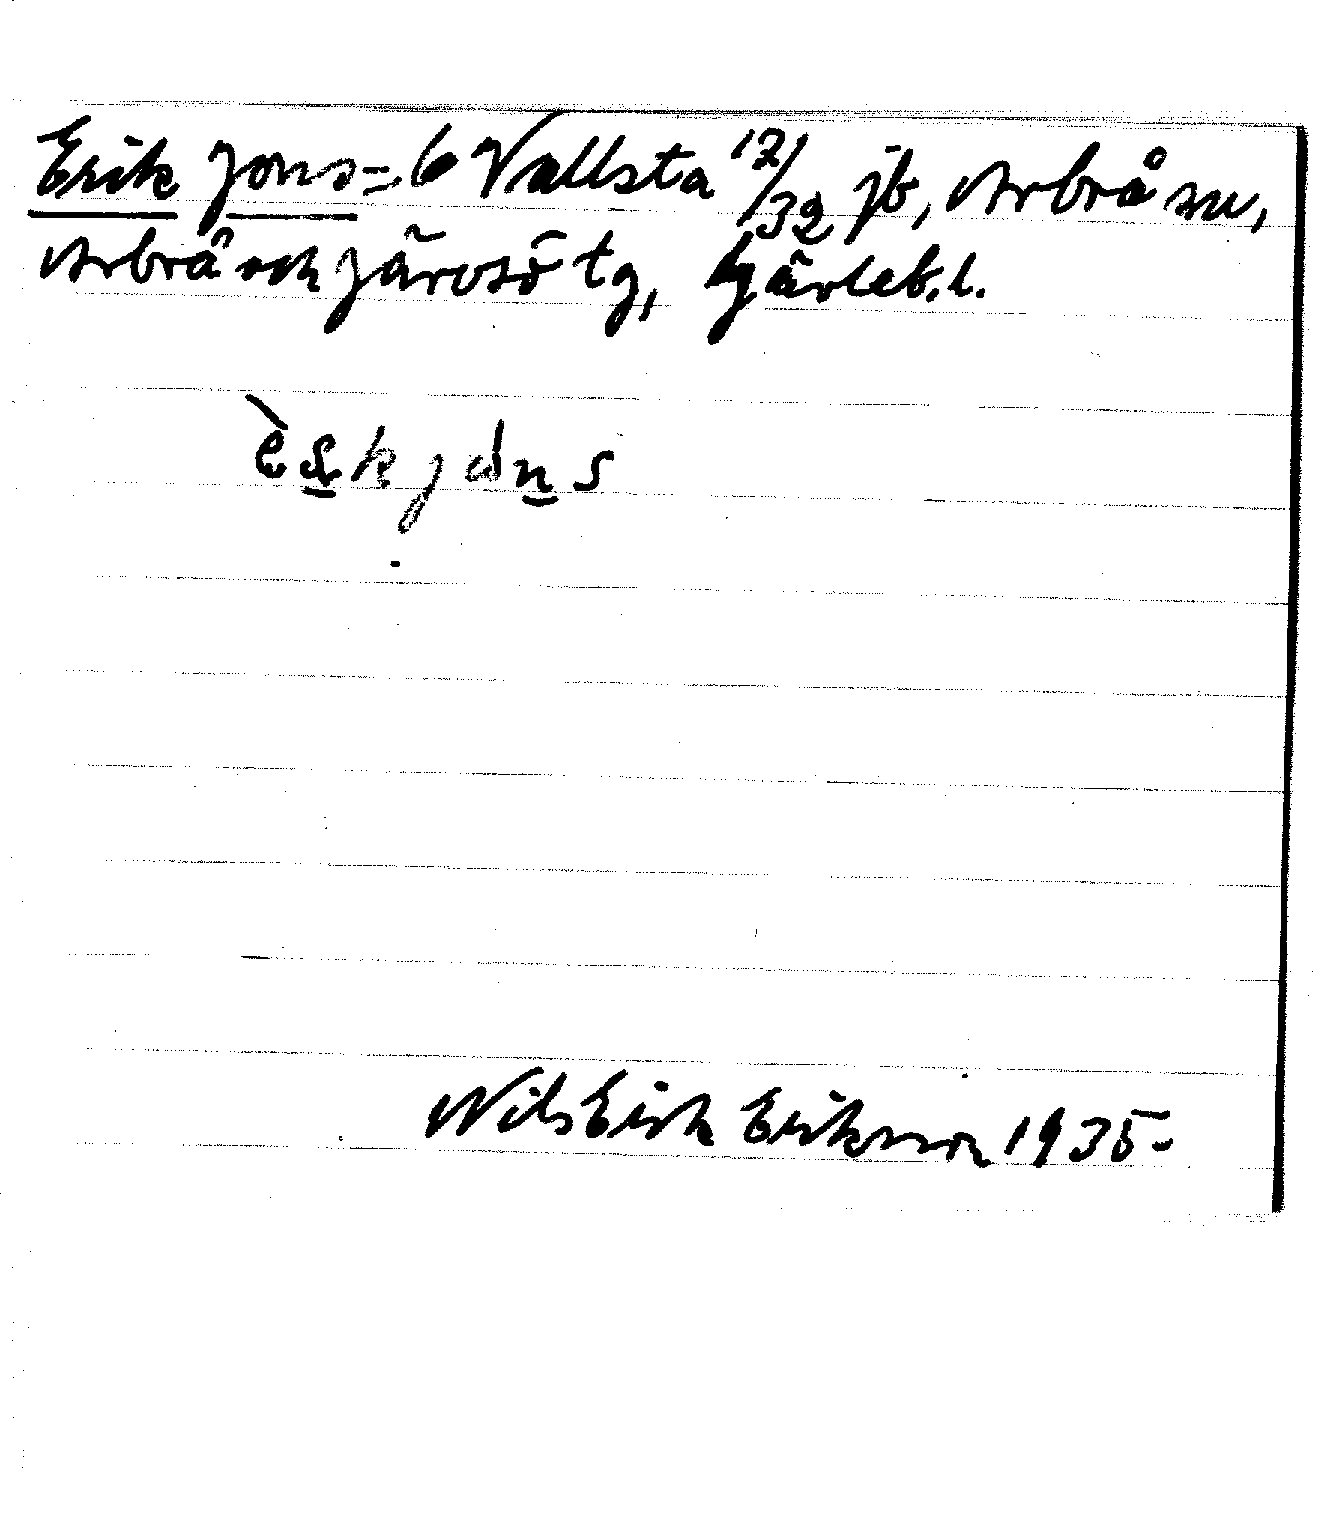 Erik Jons = 6 Vallsta 12/32 jb, Arbrå sn,
Arbrå och Järvsö tg, Gävleb. l.
Nils Erik Eriksson 1935-